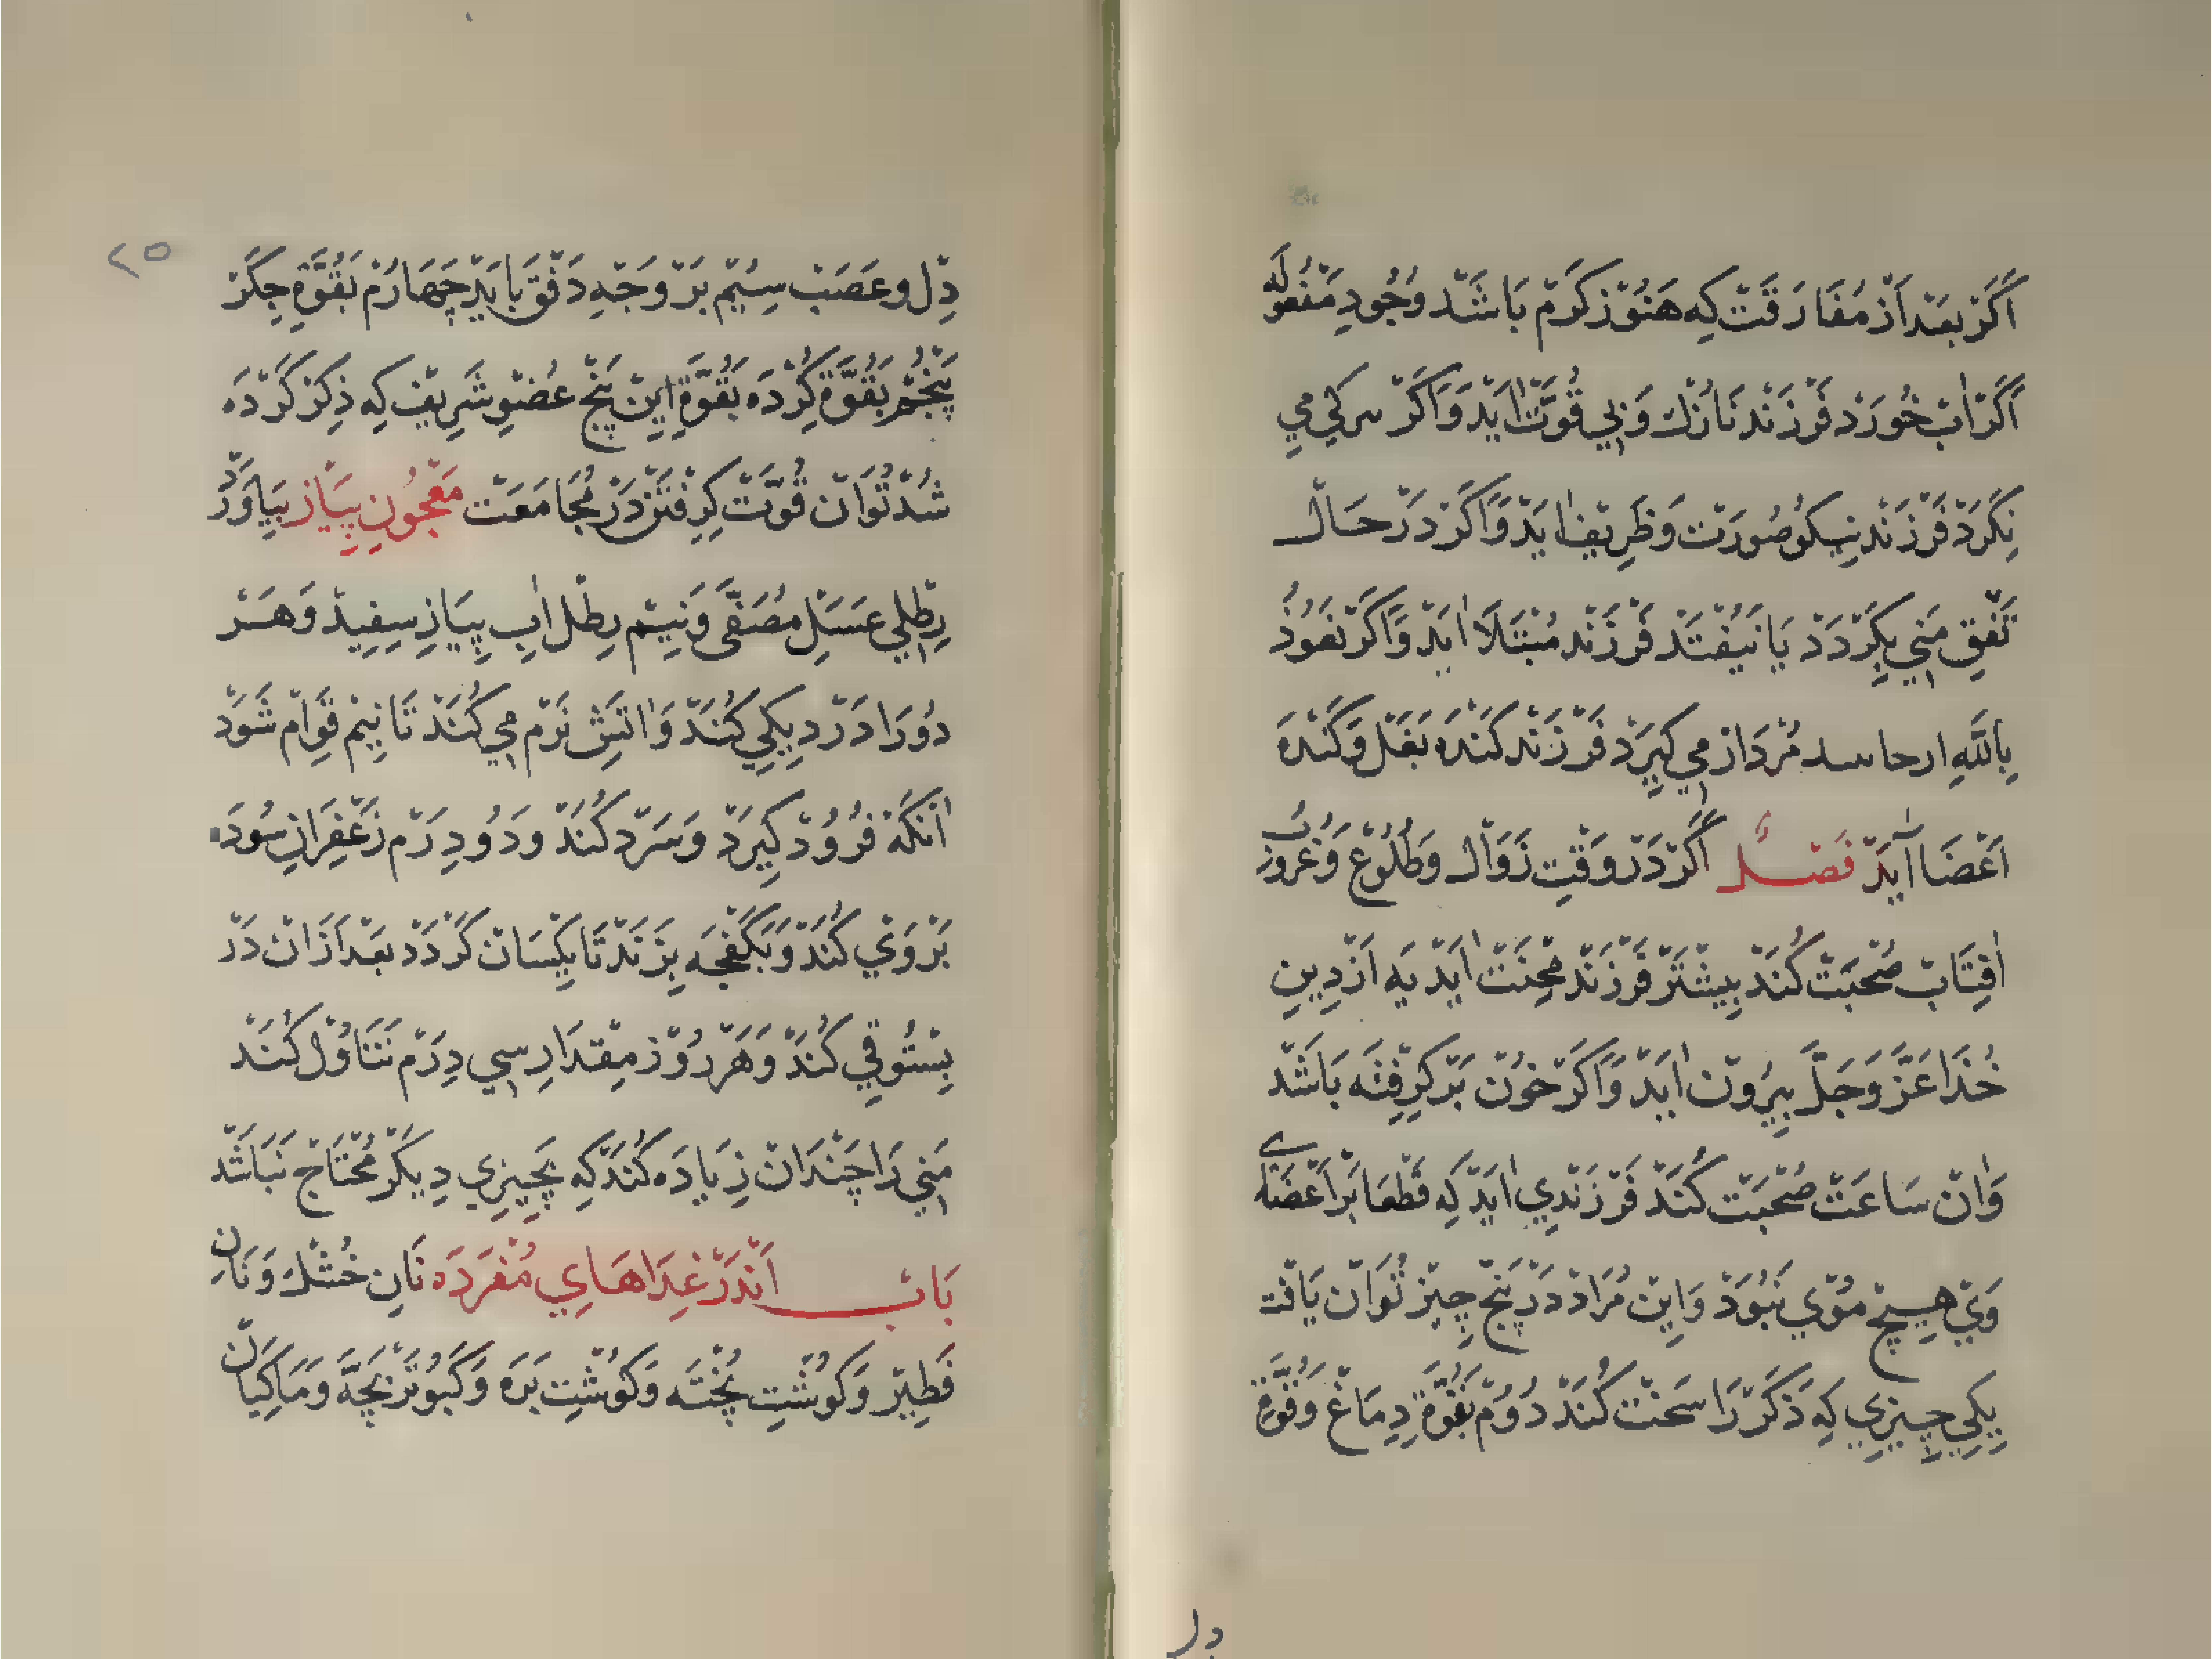 اَكَرْ بَعْد اَزْ مُفَارَقَتْ كِه هَنُوْز كَرَمْ بَاشَدْ وُجُودِ مَفْعُولَه
اَكَرْ اٰبْ خُورَدْ فَرْزَنْد نَازُكْ وَبِي قُوَّتْ اٰيَدْ وَاَكَرْ سركي مي
نِكَرَدْ فَرْزَنْد نِيكُو صُورَتْ وَظَرِيفْ اٰيَدْ وَاَكَرْ دَرْ حَالْ
مَنِي بِكِرْدَدْ يَا نَيُفْتَدْ فَرْزَنْد مُبْتَلَا اٰيَدْ وَاَكَرْ نَعُوذُ
بِاللّٰهِ مُرْدَازْ مِي كِيرَدْ فَرْزَنْد كَنْدَه بَغَلْ وَكَنْدَهْ
اَعْضَا اٰيَدْ فَصْلٌ اَكَرْ دَرْ وَقْتِ زَوَالْ وَطُلُوعْ وَغُرُوبْ
اٰفِتَابْ صُحْبَتْ كُنَدْ بِيشْتَرْ فَرْزَنْد مِحْنَتْ اٰيَدْ يَه اَزْ دِينِ
خُدَا عَزَّ وَجَلَّ بِيرُونْ اٰيَدْ وَاَكَرْ خُونْ بَرْ كِرِفْتَه بَاشَدْ
وَاٰنْ سَاعَتْ صُحْبَتْ كُنَدْ فَرْزَنْدِي اٰيَدْ كِه قَطْعَا بَرْ اَعْضَاىِ
وَيْ هِيچْ مُوْي نَبُوَدْ وَاِينْ مُرَادْ دَرْ پَنْجْ چِيزْ تُوَانْ يَافْت
يِكِي چِيزِي كِه ذَكَرْ رَا سَخْتْ كُنَدْ دُوُمْ بَقُوَّةِ دِمَاغْ وَقُوَّةِ
دل
٢٥
دِلْ وعَصَبْ سِيُمْ بَرْ وَجْهِ دَفْقْ بَايَدْ چَهَارُمْ بَقُوَّةِ جِكَرْ
پَنْجُمْ بَقُوَّةِ كُرْدَه بَقُوَّةِ اِينْ پَنْجْ عُضْوِ شَرِيفْ كِه ذِكَرْ كَرْدَه
شُدْ تُوَانْ قُوَّتْ كِرِفْتَنْ دَرْ مُجَامَعَتْ مَعْجُونِ پِيَازْ بِيَاوَرْدْ
رِطْلِي عَسَلِ مُصَفَّى وَنِيمْ رِطْل اٰبِ پِيَازِ سِفِيدْ وَهَرْ
دُو رَا دَرْ دِيكِي كُنَدْ وَاٰتَشْ نَرْم مِي كُنَدْ تَا نِيمْ قَوَامْ شَوَدْ
اٰنْكَهْ فُرُوُدْ كِيرَدْ وَسَرْد كُنَدْ وَدُو دِرَمْ زَعْفَرَانِ سُودَه
بَرْ وَيْ كُنَدْ وَبَكَفْچَه بِزَنَدْ تَا يِكْسَانْ كَرْدَدْ بَعْد اَزَانْ دَرْ
بِسْتُوقِي كُنَدْ وَهَرْ رُوزْ مِقْدَارِ سِي دِرَمْ تَنَاوُلْ كُنَدْ
مَنِي رَا چَنْدَانْ زِيَادَه كُنَدْ كِه بَچِيزِي دِيكَرْ مُحْتَاجْ نَبَاشَدْ
بَابْ اَنْدَرْ غِذَاهَايِ مُفْرَدَه نَانِ خُشْكْ وَنَانِ
فَطِيرْ وَكُوشْتِ پُخْتَه وَكُوشْتِ بَرَه وَكَبُوتَرْ بَچَّه وَمَاكِيَانْ